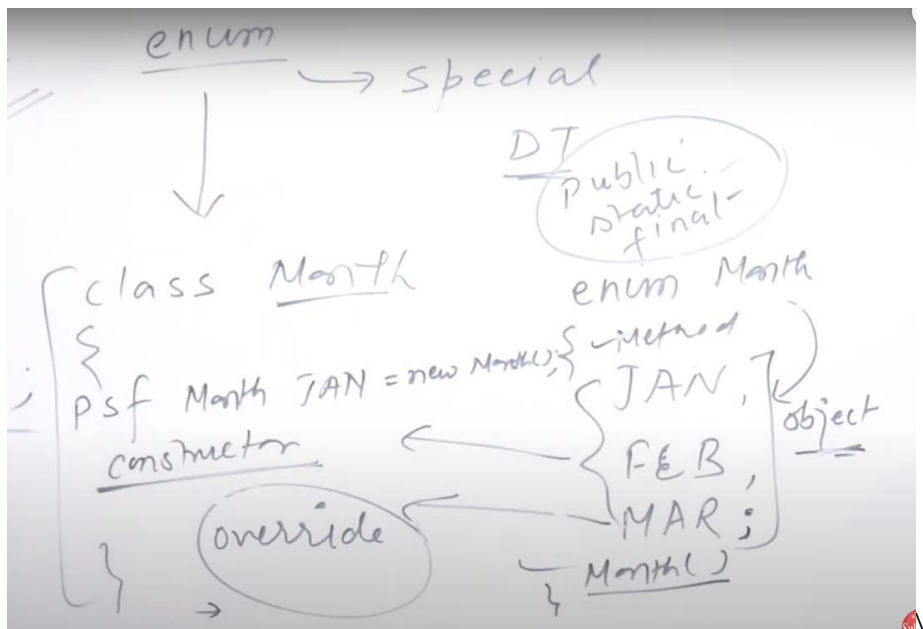 enum
→ special
DT
public
static
final
class Month
{
psf Month JAN = new Month();
constructor
override
}
→
enum Month
{ Method
JAN,
FEB,
MAR;
object
Month()
}